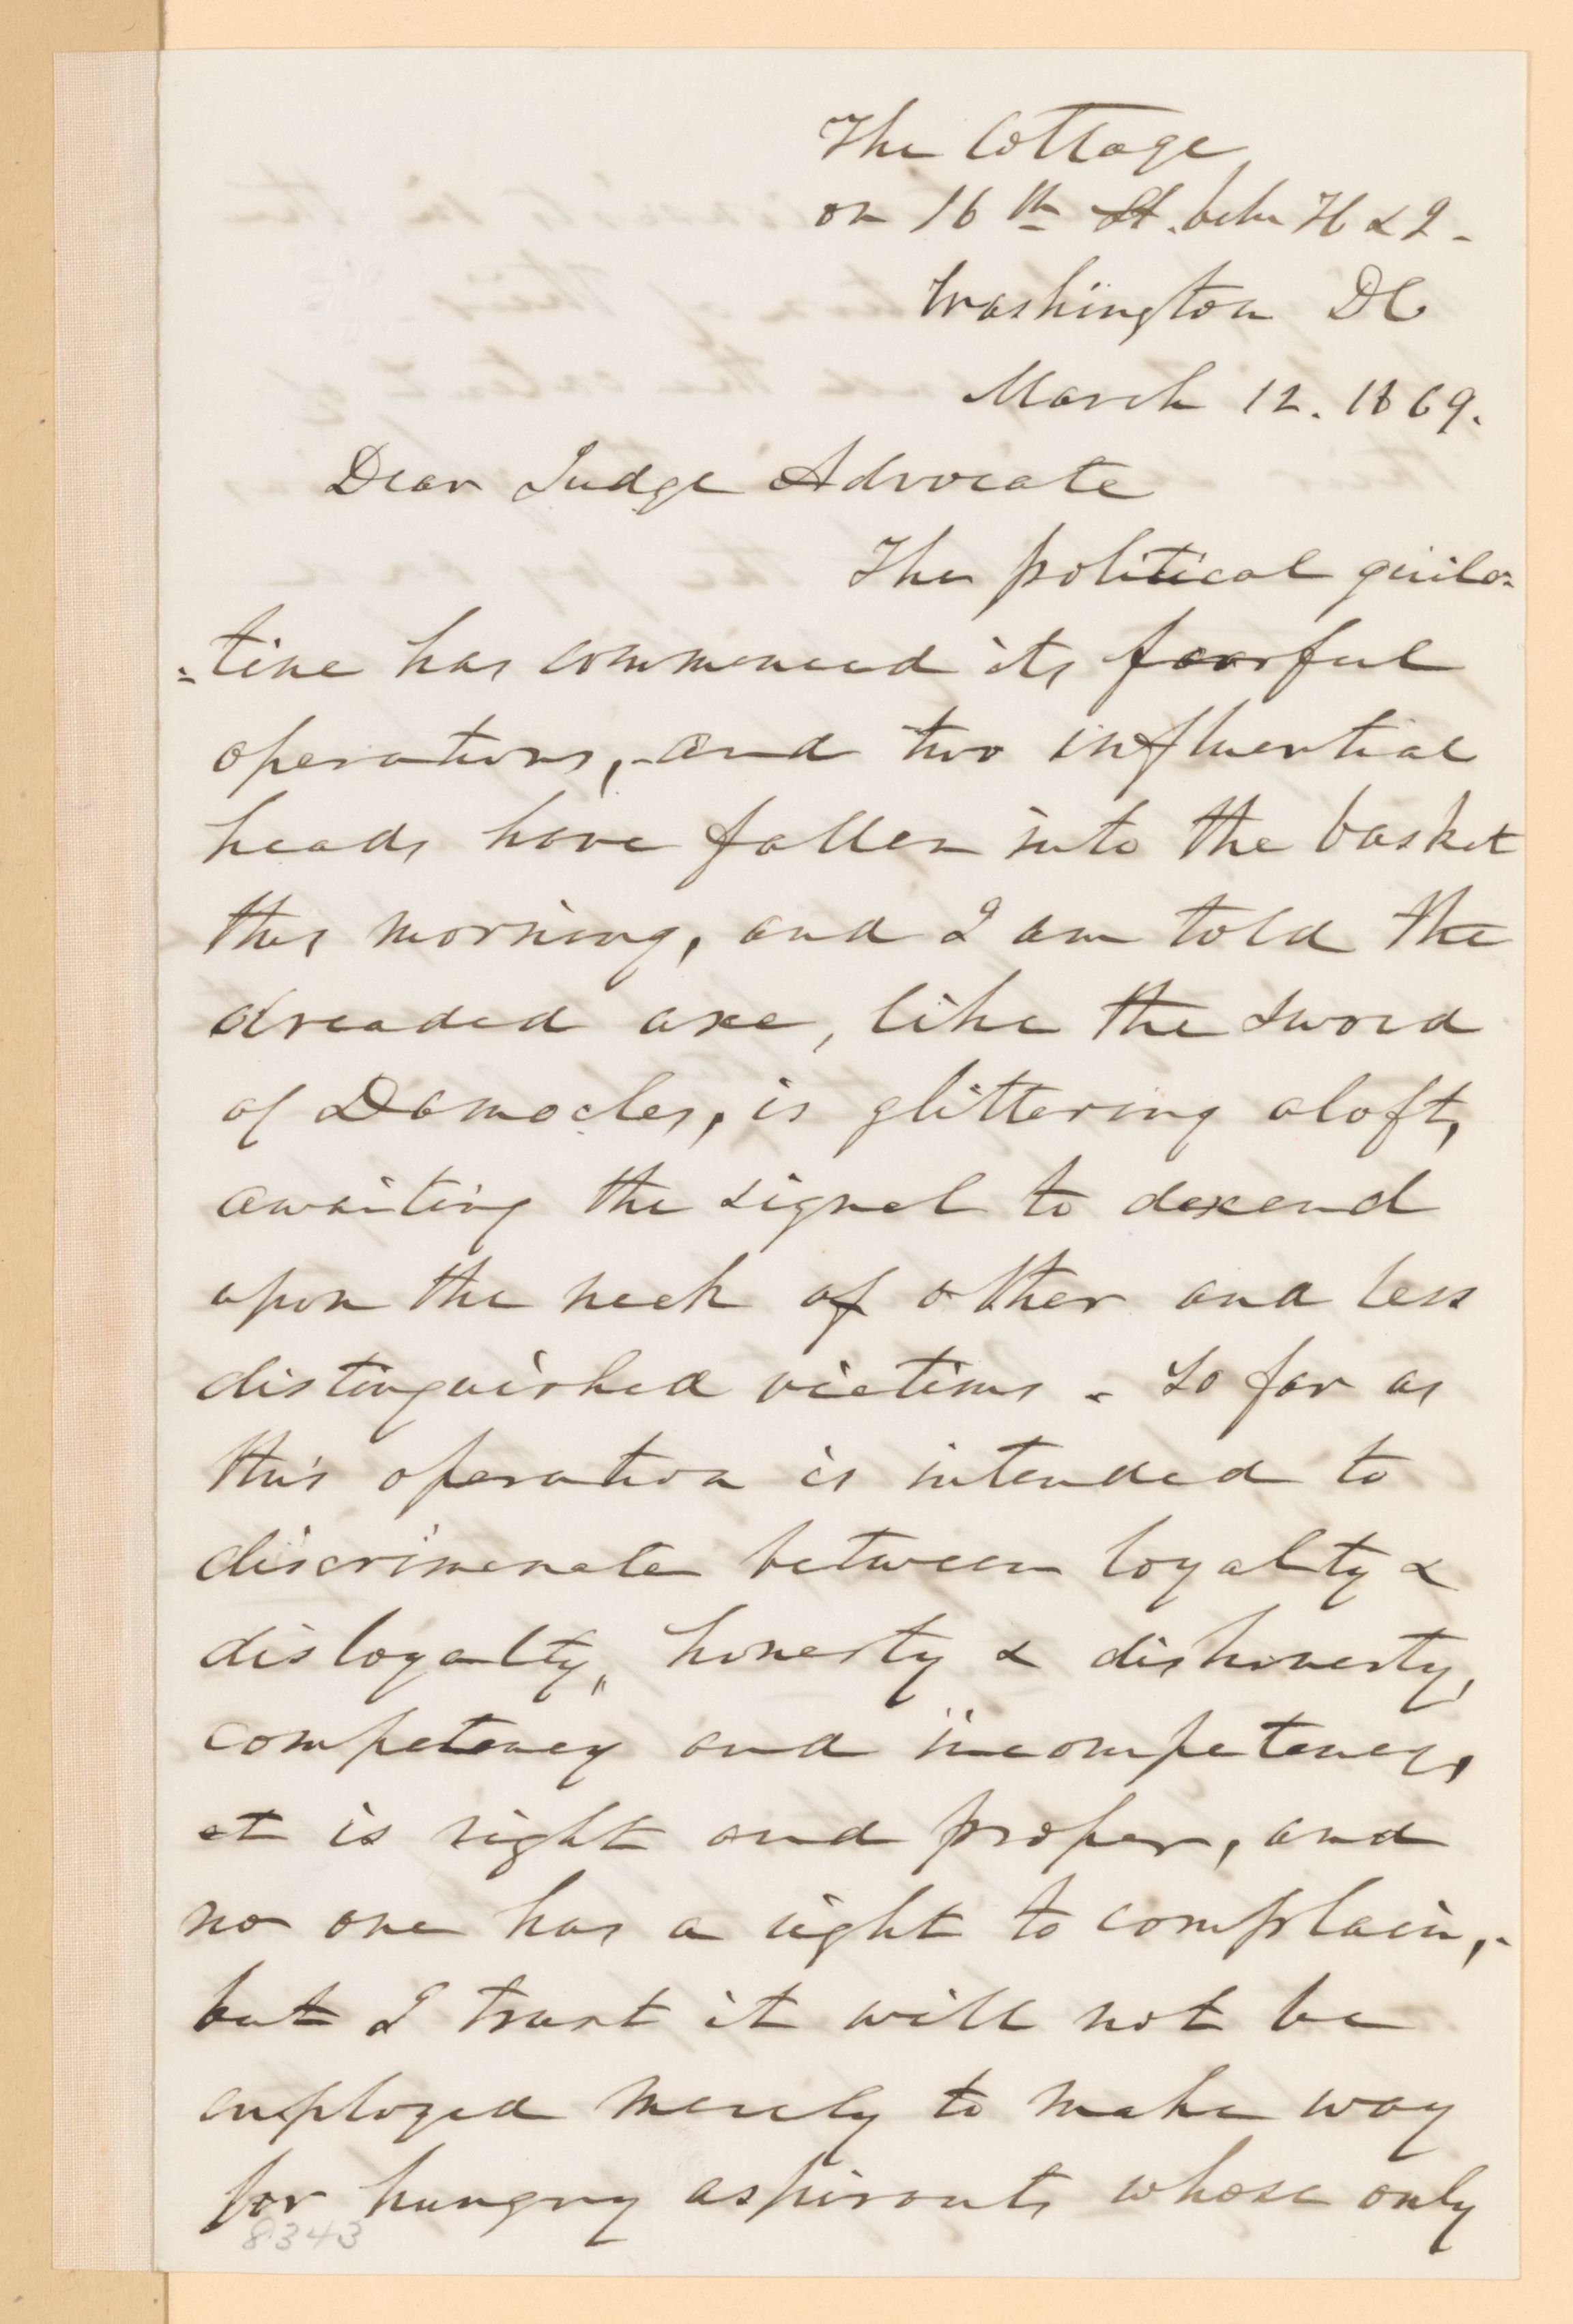 The Cottage
on 16th St. betw H & I -
Washington DC
March 12. 1869.
Dear Judge Advocate
The political guilo=
=tine has commenced its fearful
operations, - and two influential
heads have fallen into the basket
this morning, and I am told the
dreaded axe, like the sword
of Damocles, is glittering aloft,
awaiting the signal to descend
upon the neck of other and less
distinguished victims - So far as
this operation is intended to
discriminate between loyalty &
disloyalty, honesty & dishonesty,
competency and incompetency,
it is right and proper, and
no one has a right to complain, -
but I trust it will not be
employed merely to make way
for hungry aspirants whose only
8343